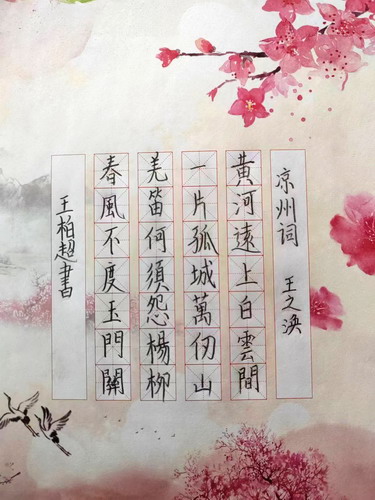 凉州词 王之涣
黄河遠上白雲間
一片孤城萬仞山
羌笛何須怨楊柳
春風不度玉門關
王柏超書